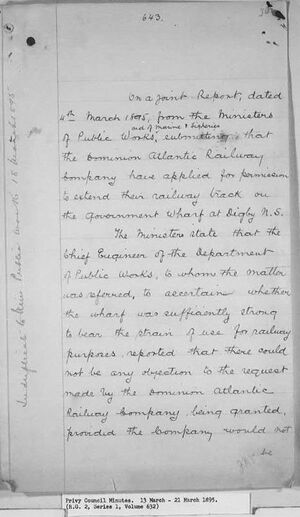 643.
On a Joint Report, dated
4th March 1895, from the Ministers
and of Marine & Fisheries
of Public Works, submitting that
the Dominion Atlantic Railway
Company have applied for permission
to extend their railway track on
the Government Wharf at Digby N.S.
The Ministers state that the
Chief Engineer of the Department
of Public Works, to whom the matter
was referred, to ascertain whether
the wharf was sufficiently strong
to bear the strain of use for railway
purposes, reported that there could
not be any objection to the request
made by the Dominion Atlantic
Railway Company, being granted,
provided the Company would not
be
Public Works 18 March 1895
Privy Council Minutes. 13 March - 21 March 1895.
(R.G. 2, Series 1, Volume 632)